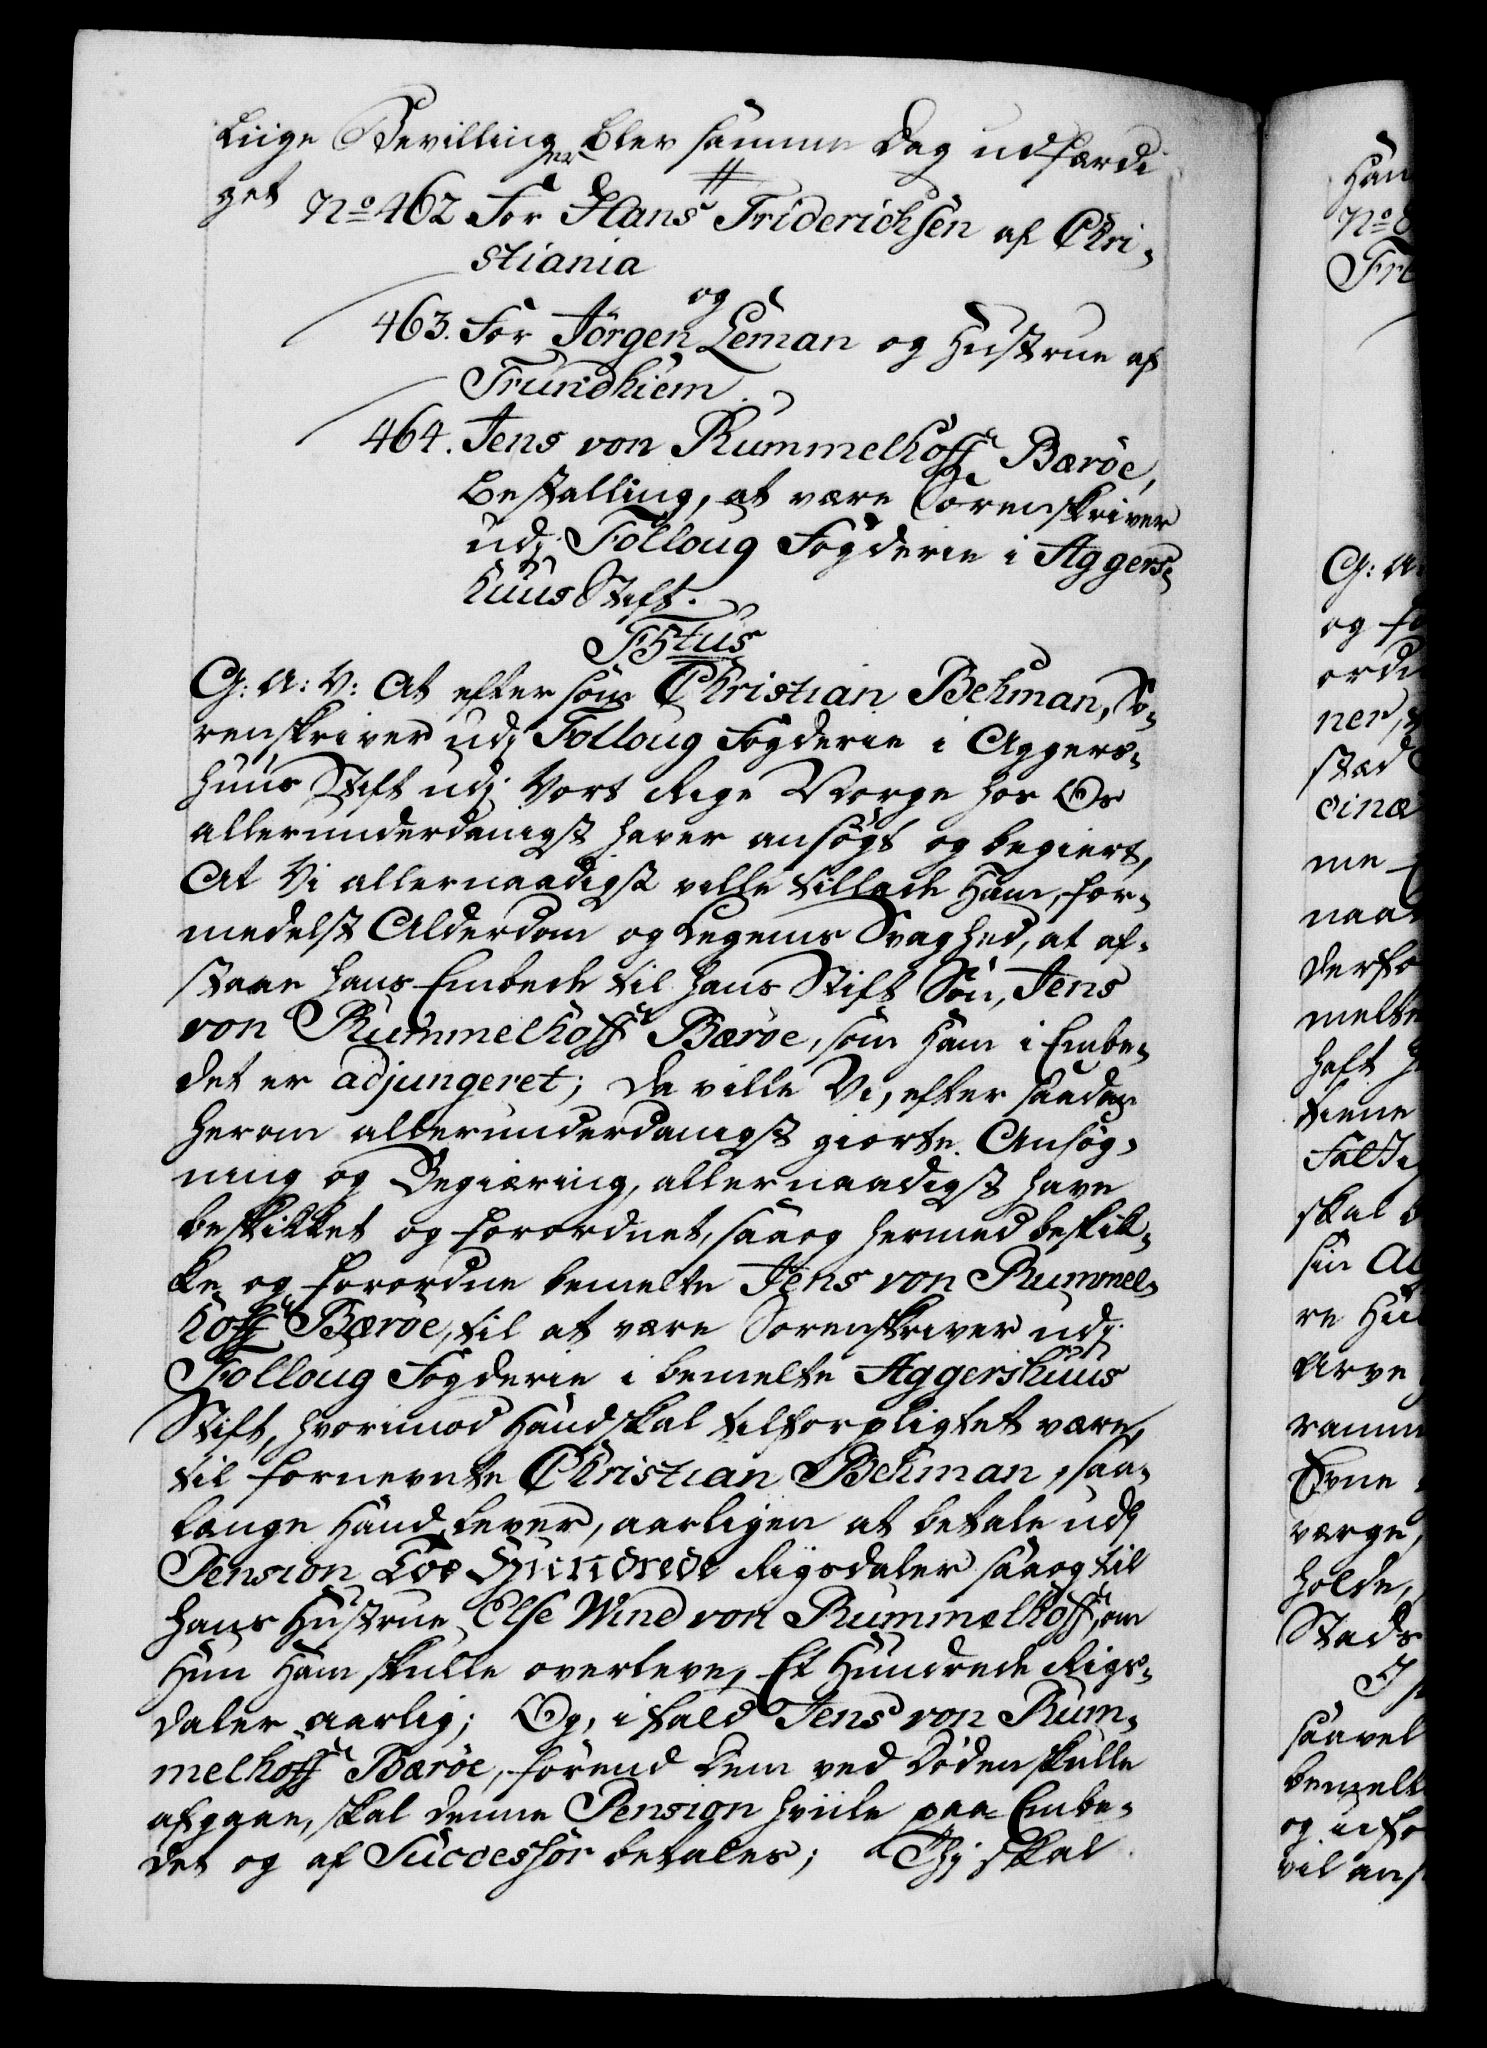 Liige Bevillinger blev samme Dag udfærdi
get
No 462 For Hans Friderichsen af Chri-
stiania
og
463. For Jörgen Leman og Hustrue af
Trundhiem.
464. Jens von Rummelhoff Bæröe,
Bestalling, at være Sorenskriver
udj Folloug Fogderie i Aggers-
huus Stift.
F5tus
G: A: V: At eftersom Christian Behman, So-
renskriver udj Folloug Fogderie i Aggers-
huus Stift udj Vort Rige Norge hos Os
allerunderdanigst haver ansögt og begiert,
At Vi allernaadigst ville tillade Ham, for-
medelst Alderdom og Legems Svaghed, at af-
staae hans Embede til hans Stift Sön, Jens
von Rummelhoff Bæröe, som ham i Embe-
det er adjungeret; Da ville Vi, efter saadan
herom allerunderdanigst giorte Ansög-
ning og Begiæring, allernaadigst have
beskikket og forordnet, saaog hermed beskik-
ke og forordne bemelte Jens von Rummel-
hoff Bæröe, til at være Sorenskriver udj
Folloug Fogderie i bemelte Aggershuus
Stift, hvorimod Hand skal tilforpligtet være,
til fornevnte Christian Behman, saa-
længe Hand lever, aarligen at betale udj
Pension Toe Hundrede Rigsdaler saaog til
hans Hustrue Else Wind von Rummelhoff, om
Hun Ham skulle overleve, Et Hundrede Rigs-
daler aarlig; Og, ifald Jens von Rum-
melhoff Bæröe, förend Dem ved Döden skulle
afgaae, skal denne Pension hviile paa Embe-
det og af Successor betales; Thj skal